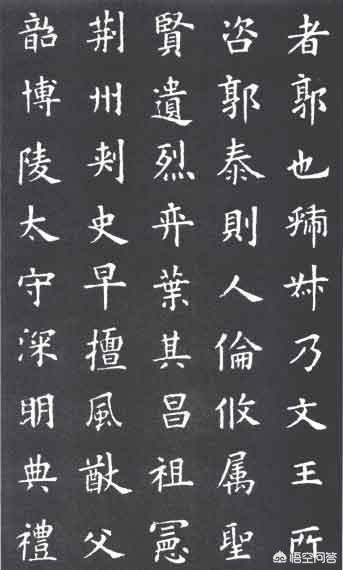 者郭也虢叔乃文王所
咨郭泰則人倫攸属聖
賢遺烈弈葉其昌祖憲
荆州刺史早擅風猷父
韶博陵太守深明典禮
悟空问答